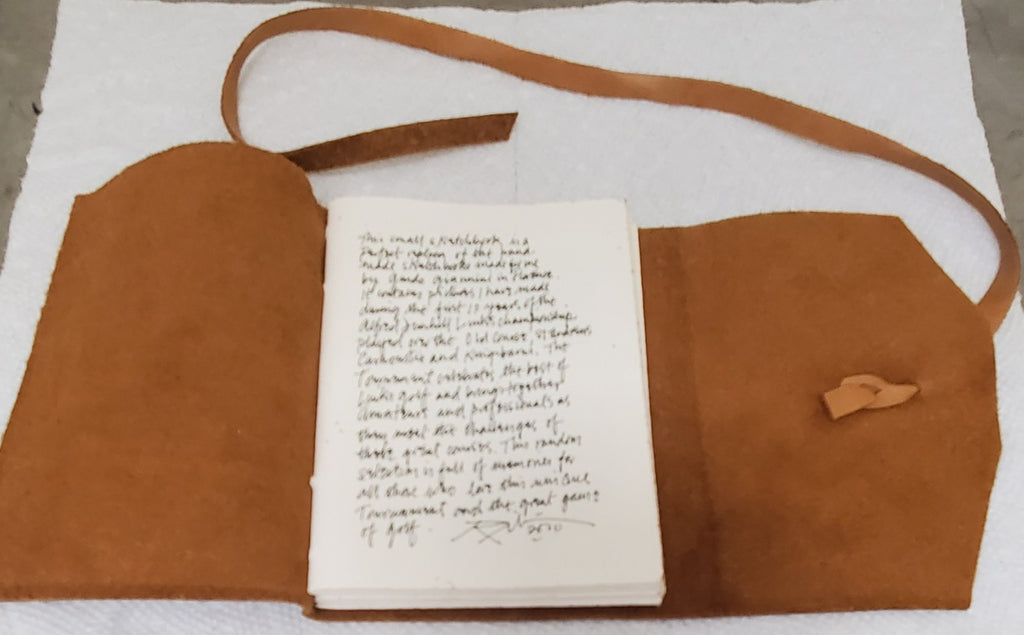 This small sketchbook is a
perfect replica of the hand
made sketchbooks made for me
by Guido Giannini in Florence.
It contains pictures I have made
during the first 10 years of the
Alfred Dunhill Links Championship,
played over the Old Course, St Andrews
Carnoustie and Kingsbarns. The
Tournament celebrates the best of
Links golf and brings together
Amateurs and professionals as
they meet the challenges of
these great courses. This random
selection is full of memories for
all those who love this unique
Tournament and the great game
of golf.
2010